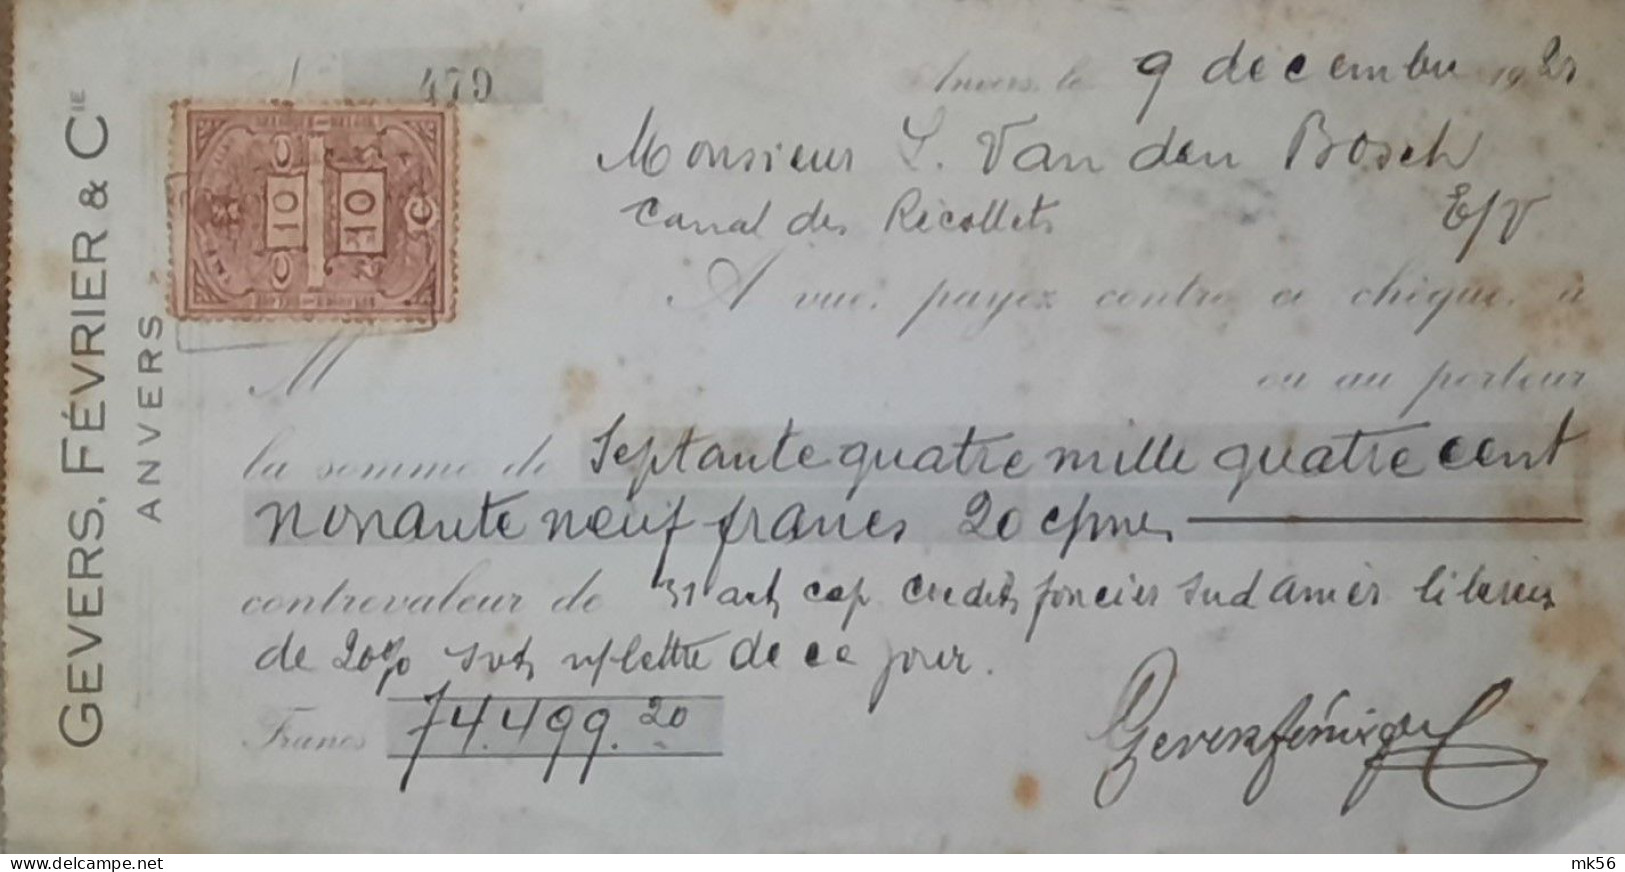 GEVERS, FÉVRIER & CIE
ANVERS
479
10 10
Anvers, le 9 decembre 1921
Monsieur L. Van den Bosch
Canal des Récollets E/V
A vue, payez contre ce chèque, à
M
ou au porteur
la somme de Septante quatre mille quatre cent
nonante neuf francs 20 cmes
contrevaleur de 51 act cap Crédit foncier Sud Amér libérées
de 20% svt n/lettre de ce jour.
Francs 74.499.20
Gevers Février & C
www.delcampe.net
mk56